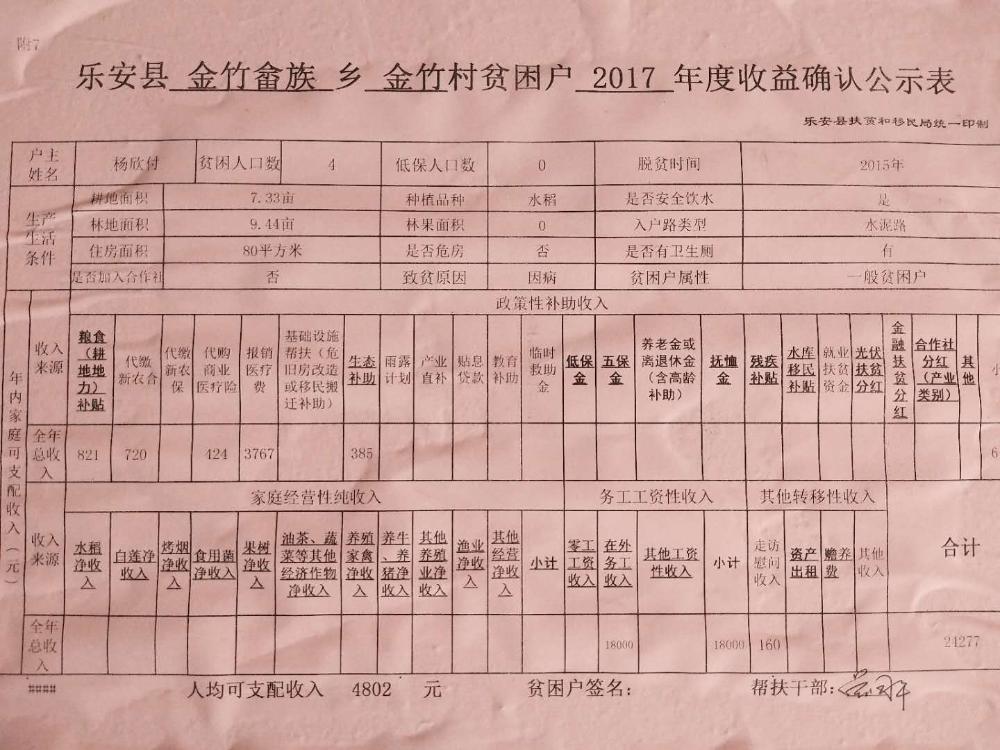 附7
乐安县 金竹畲族 乡 金竹村贫困户 2017 年度收益确认公示表
乐安县扶贫和移民局统一印制
户主姓名 杨欣付 贫困人口数 4 低保人口数 0 脱贫时间 2015年
生产生活条件
耕地面积 7.33亩 种植品种 水稻 是否安全饮水 是
林地面积 9.44亩 林果面积 0 入户路类型 水泥路
住房面积 80平方米 是否危房 否 是否有卫生厕 有
是否加入合作社 否 致贫原因 因病 贫困户属性 一般贫困户
年内家庭可支配收入（元）
政策性补助收入
收入来源 粮食（耕地地力）补贴 代缴新农合 代缴新农保 代购商业医疗险 报销医疗费 基础设施帮扶（危旧房改造或移民搬迁补助） 生态补助 雨露计划 产业直补 贴息贷款 教育补助 临时救助金 低保金 五保金 养老金或离退休金（含高龄补助） 抚恤金 残疾补贴 水库移民补贴 就业扶贫资金 光伏扶贫分红 金融扶贫分红 合作社分红（产业类别） 其他 小
全年总收入 821 720 424 3767 385 6
家庭经营性纯收入 务工工资性收入 其他转移性收入
收入来源 水稻净收入 白莲净收入 烤烟净收入 食用菌净收入 果树净收入 油茶、蔬菜等其他经济作物净收入 养殖家禽净收入 养牛、养猪净收入 其他养殖业净收入 渔业净收入 其他经营净收入 小计 零工工资收入 在外务工收入 其他工资性收入 小计 走访慰问收入 资产出租 赡养费 其他收入 合计
全年总收入 18000 18000 160 24277
#### 人均可支配收入 4802 元 贫困户签名： 帮扶干部：